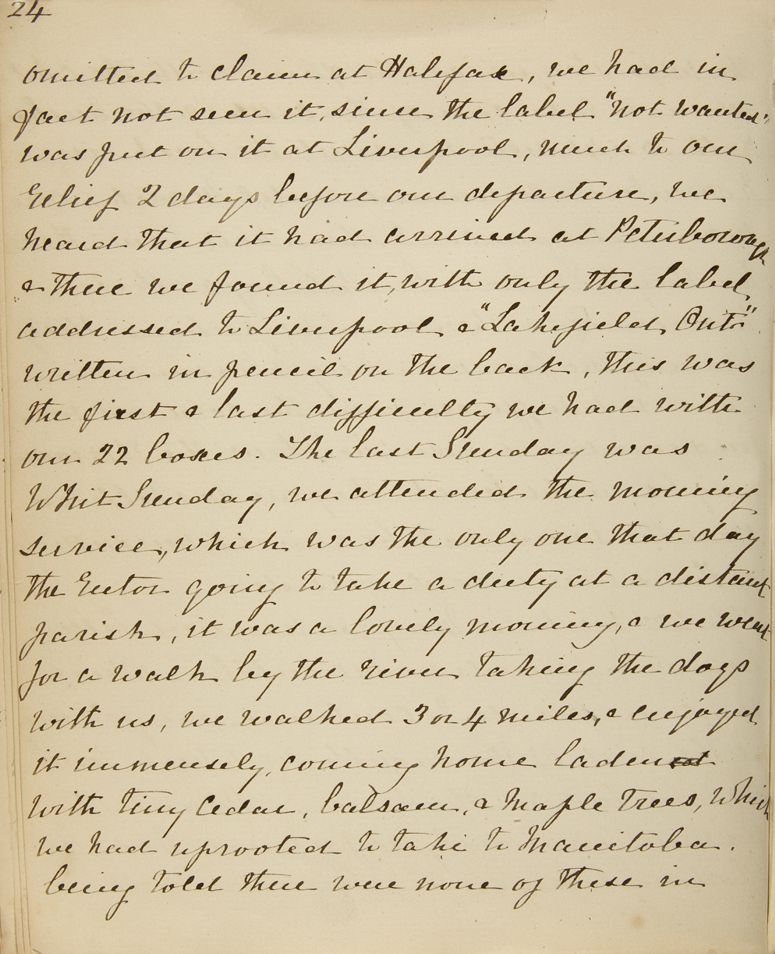 24
omitted to claim at Halifax, we had in
fact not seen it, since the label "not wanted"
was put on it at Liverpool, much to our
relief 2 days before our departure, we
heard that it had arrived at Peterborough
& there we found it, with only the label
addressed to Liverpool & "Lakefield, Ont:"
written in pencil on the back, this was
the first & last difficulty we had with
our 22 boxes. The last Sunday was
Whit Sunday, we attended the morning
service, which was the only one that day
the Rector going to take a duty at a distant
parish, it was a lovely morning, & we went
for a walk by the river taking the dogs
with us, we walked 3 or 4 miles, & enjoyed
it immensely, coming home laden
with tiny cedar, balsam, & maple trees, which
we had uprooted to take to Manitoba.
being told there were none of these in